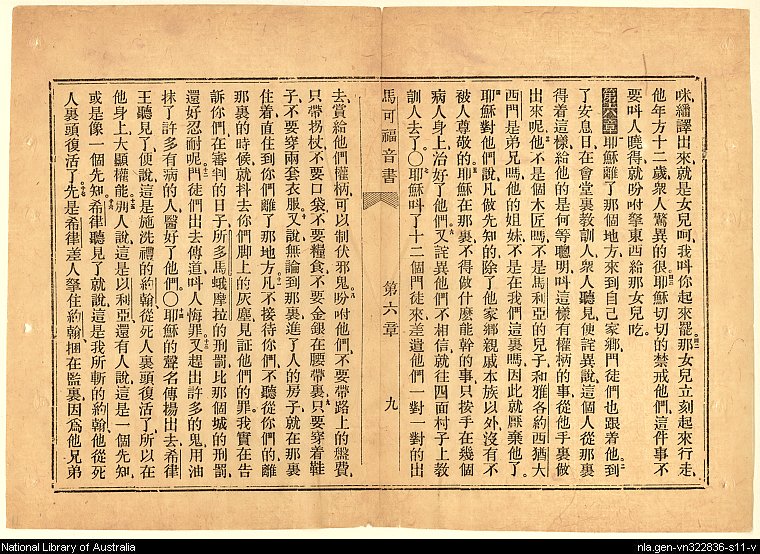 咪繙譯出來就是女兒呵我叫你起來罷那女兒立刻起來行走
他年方十二歲衆人驚異的很耶穌切切的禁戒他們這件事不
要叫人曉得就吩咐拏東西給那女兒吃
第六章耶穌離了那個地方來到自己家鄉門徒們也跟着他到
了安息日在會堂裏教訓人衆人聽見便詫異說這個人從那裏
得着這樣給他的是何等聰明叫這樣有權柄的事從他手裏做
出來呢他不是個木匠嗎不是馬利亞的兒子和雅各約西猶大
西門是弟兄嗎他的姐妹不是在我們這裏嗎因此就厭棄他了
耶穌對他們說凡做先知的除了他家鄉親戚本族以外沒有不
被人尊敬的耶穌在那裏不得做什麼能幹的事只按手在幾個
病人身上治好了他們又詫異他們不相信就往四面村子上教
訓人去了〇耶穌叫了十二個門徒來差遣他們一對一對的出
馬可福音書 第六章 九
去賞給他們權柄可以制伏邪鬼吩咐他們不要帶路上的盤費
只帶拐杖不要口袋不要糧食不要金銀在腰帶裏只要穿着鞋
子不要穿兩套衣服又說無論到那裏進了人的房子就在那裏
住着直住到你們離了那地方凡不接待你們不聽從你們的離
那裏的時候就抖去你們脚上的灰塵見証他們的罪我實在告
訴你們在審判的日子所多馬蛾摩拉的刑罰比那個城的刑罰
還好忍耐呢門徒們出去傳道叫人悔罪又趕出許多的鬼用油
抹了許多有病的人醫好了他們〇耶穌的聲名傳揚出去希律
王聽見了便說這是施洗禮的約翰從死人裏頭復活了所以在
他身上大顯權能別人說這是以利亞還有人說這是一個先知
或是像一個先知希律聽見了就說這是我所斬的約翰他從死
人裏頭復活了先是希律差人拏住約翰捆在監裏因爲他兄弟
National Library of Australia
nla.gen-vn322836-s11-v